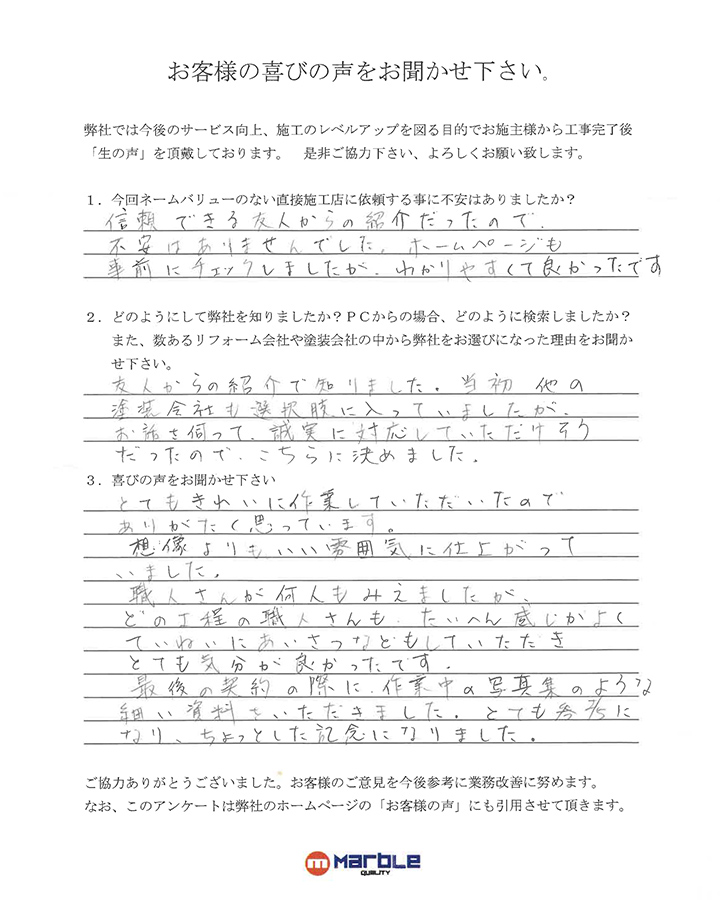 お客様の喜びの声をお聞かせ下さい。
弊社では今後のサービス向上、施工のレベルアップを図る目的でお施主様から工事完了後
「生の声」を頂戴しております。　是非ご協力下さい、よろしくお願い致します。
１．今回ネームバリューのない直接施工店に依頼する事に不安はありましたか？
信頼できる友人からの紹介だったので、
不安はありませんでした。ホームページも
事前にチェックしましたが、わかりやすくて良かったです
２．どのようにして弊社を知りましたか？ＰＣからの場合、どのように検索しましたか？
また、数あるリフォーム会社や塗装会社の中から弊社をお選びになった理由をお聞か
せ下さい。
友人からの紹介で知りました。当初 他の
塗装会社も選択肢に入っていましたが、
お話を伺って、誠実に対応していただけそう
だったので、こちらに決めました。
３．喜びの声をお聞かせ下さい
とてもきれいに作業していただいたので
ありがたく思っています。
想像よりもいい雰囲気に仕上がって
いました。
職人さんが何人もみえましたが、
どの工程の職人さんも、たいへん感じがよく
ていねいにあいさつなどもしていただき
とても気分が良かったです。
最後の契約の際に、作業中の写真集のような
細い資料をいただきました。とても参考に
なり、ちょっとした記念になりました。
ご協力ありがとうございました。お客様のご意見を今後参考に業務改善に努めます。
なお、このアンケートは弊社のホームページの「お客様の声」にも引用させて頂きます。
MARBLE
QUALITY